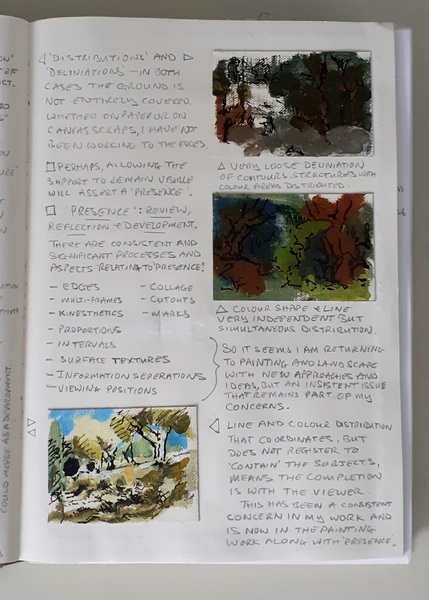 ◁ 'DISTRIBUTIONS' AND ▷
'DELINIATIONS' – IN BOTH
CASES THE GROUND IS
NOT ENTIRELY COVERED.
WHETHER ON PAPER OR ON
CANVAS SCRAPS, I HAVE NOT
BEEN WORKING TO THE EDGES.
□ PERHAPS, ALLOWING THE
SUPPORT TO REMAIN VISIBLE
WILL ASSERT A 'PRESENCE'.
□ "PRESENCE": REVIEW,
REFLECTION & DEVELOPMENT.
THERE ARE CONSISTENT AND
SIGNIFICANT PROCESSES AND
ASPECTS RELATING TO 'PRESENCE':
– EDGES – COLLAGE
– MULTI-FRAMES – CUTOUTS
– KINESTHETICS – MARKS
– PROPORTIONS
– INTERVALS
– SURFACE TEXTURES
– INFORMATION SEPERATIONS
– VIEWING POSITIONS
△ VERY LOOSE DELINIATION
OF CONTOURS. STRUCTURES WITH
COLOUR AREAS DISTRIBUTED.
△ COLOUR SHAPE & LINE
VERY INDEPENDENT BUT
SIMULTANEOUS DISTRIBUTION.
SO IT SEEMS I AM RETURNING
TO PAINTING AND LANDSCAPE
WITH NEW APPROACHES AND
IDEAS, BUT AN INSISTENT ISSUE
THAT REMAINS PART OF MY
CONCERNS.
◁ LINE AND COLOUR DISTRIBUTION
THAT COORDINATES, BUT
DOES NOT REGISTER TO
'CONTAIN' THE SUBJECTS,
MEANS THE COMPLETION
IS WITH THE VIEWER.
THIS HAS BEEN A CONSISTENT
CONCERN IN MY WORK AND
IS NOW IN THE PAINTING
WORK ALONG WITH 'PRESENCE'.
COULD MERGE AS A DEVELOPMENT